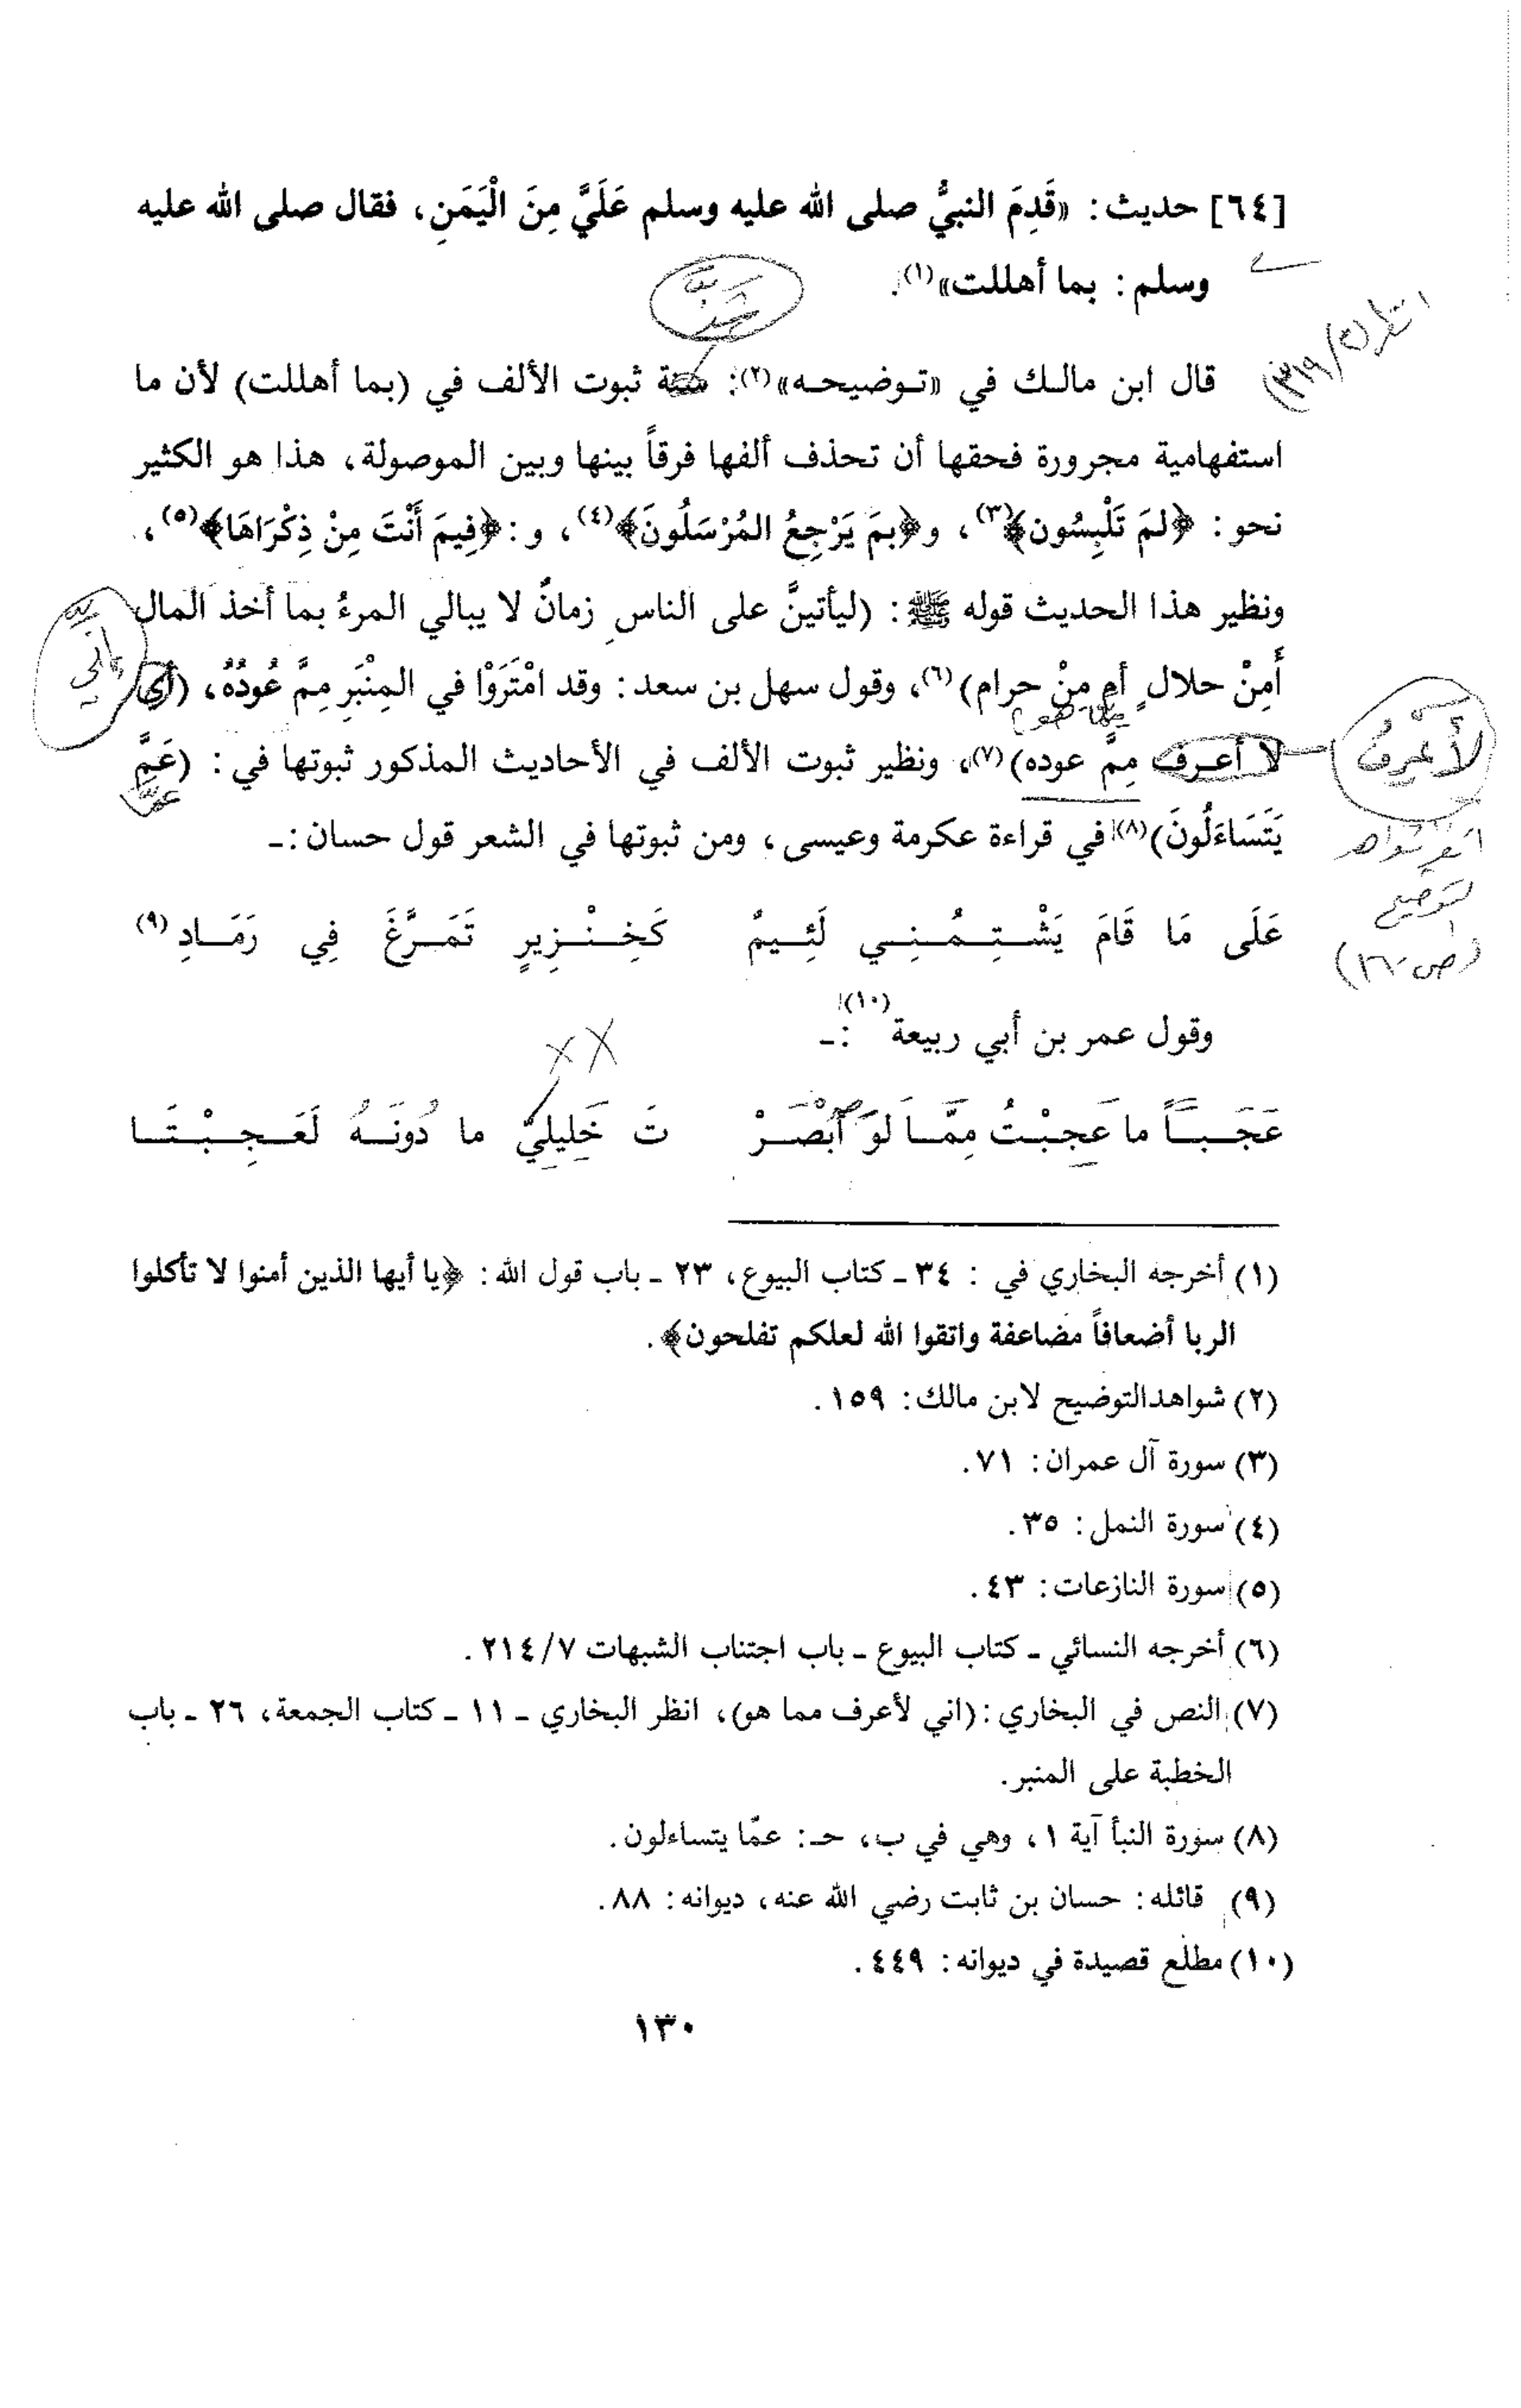 [٦٤] حديث: «قَدِمَ النبيُّ صلى الله عليه وسلم عَلَيَّ مِنَ الْيَمَنِ، فقال صلى الله عليه
وسلم: بما أهللت»(١).
شَذَّ
انظر (٣/٣١٩)
قال ابن مالـك في «تـوضيحـه»(٢): ثبوت الألف في (بما أهللت) لأن ما
استفهامية مجرورة فحقها أن تحذف ألفها فرقاً بينها وبين الموصولة، هذا هو الكثير
نحو: ﴿لمَ تَلْبِسُون﴾(٣)، و﴿بمَ يَرْجِعُ المُرْسَلُونَ﴾(٤)، و: ﴿فِيمَ أَنْتَ مِنْ ذِكْرَاهَا﴾(٥)،
ونظير هذا الحديث قوله ﷺ: (ليأتينَّ على الناس زمانٌ لا يبالي المرءُ بما أخذ المال
إنّي
أَمِنْ حلالٍ أم مِنْ حرام)(٦)، وقول سهل بن سعد: وقد امْتَرَوْا في المِنْبَرِ مِمَّ عُودُهُ، (أي
مما هو)
لا أعـرف مِمَّ عوده)(٧)، ونظير ثبوت الألف في الأحاديث المذكور ثبوتها في: (عَمَّ
لأَعرِفُ
عمّا
يَتَسَاءَلُونَ)(٨) في قراءة عكرمة وعيسى، ومن ثبوتها في الشعر قول حسان:ـ
انظر شواهد
التوضيح
(ص ١٦٠)
عَلَى مَا قَامَ يَشْـتِـمُـنِـي لَئِـيمٌ كَخِـنْـزِيرٍ تَمَـرَّغَ فِي رَمَـادِ(٩)
وقول عمر بن أبي ربيعة(١٠):ـ
XX
عَجَـبـاً ما عَجِبْـتُ مِمَّـا لَوَ آبْصَـرْ تَ خَلِيلِيَّ ما دُونَـهُ لَعَـجِـبْـتَـا
(١) أخرجه البخاري في : ٣٤ ـ كتاب البيوع، ٢٣ ـ باب قول الله: ﴿يا أيها الذين أمنوا لا تأكلوا
الربا أضعافاً مضاعفة واتقوا الله لعلكم تفلحون﴾.
(٢) شواهدالتوضيح لابن مالك: ١٥٩.
(٣) سورة آل عمران: ٧١.
(٤) سورة النمل: ٣٥.
(٥) سورة النازعات: ٤٣.
(٦) أخرجه النسائي ـ كتاب البيوع ـ باب اجتناب الشبهات ٢١٤/٧.
(٧) النص في البخاري: (اني لأعرف مما هو)، انظر البخاري ـ ١١ ـ كتاب الجمعة، ٢٦ ـ باب
الخطبة على المنبر.
(٨) سورة النبأ آية ١، وهي في ب، حـ: عمّا يتساءلون.
(٩) قائله: حسان بن ثابت رضي الله عنه، ديوانه: ٨٨.
(١٠) مطلع قصيدة في ديوانه: ٤٤٩.
١٣٠